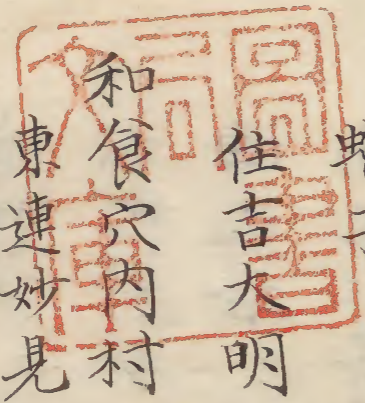 住吉大明
和食穴内村
東連妙見